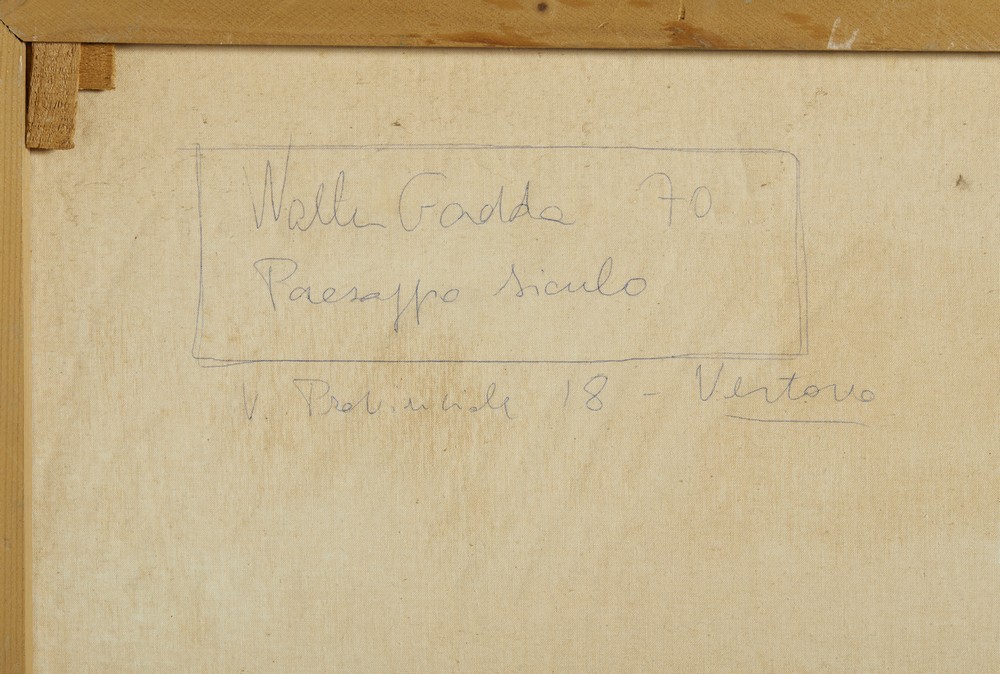 Walter Gadda 70
Paesaggio siculo
V. Provinciale 18 - Vertova